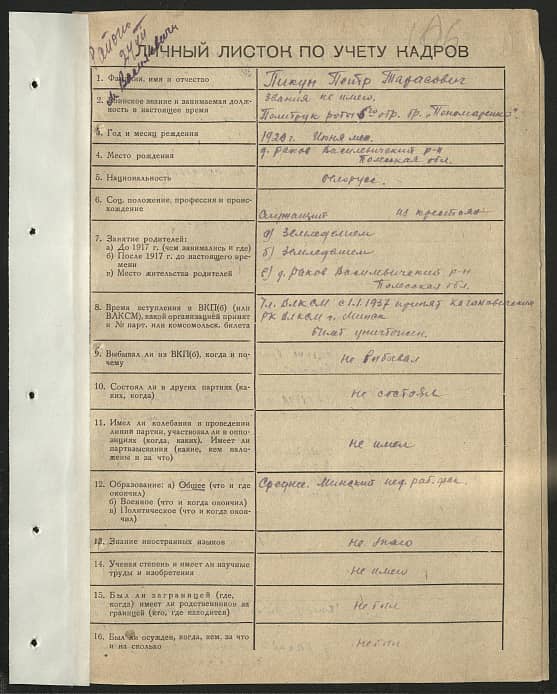 ЛИЧНЫЙ ЛИСТОК ПО УЧЕТУ КАДРОВ
1. Фамилия, имя и отчество
Пикун Петр Тарасович
2. Воинское звание и занимаемая долж-
ность в настоящее время
Звания не имею.
Политрук роты 5го отр. бр. „Пономаренко".
3. Год и месяц рождения
1920 г. Июня мес.
4. Место рождения
д. Раков Василевичский р-н
Полесская обл.
5. Национальность
белорус.
6. Соц. положение, профессия и проис-
хождение
Служащий из крестьян
7. Занятие родителей:
а) До 1917 г. (чем занимались и где)
б) После 1917 г. до настоящего вре-
мени
в) Место жительства родителей
а) Земледелием
б) Земледелием
в) д. Раков Василевичский р-н
Полесская обл.
8. Время вступления в ВКП(б) (или
ВЛКСМ), какой организацией принят
и № парт. или комсомольск. билета
Чл. ВЛКСМ с 1.1.1937 принят Кагановичским
РК ВЛКСМ г. Минск
билет уничтожен.
9. Выбывал ли из ВКП(б), когда и по-
чему
Не выбывал
10. Состоял ли в других партиях (ка-
ких, когда)
Не состоял
11. Имел ли колебания в проведении
линии партии, участвовал ли в оппо-
зициях (когда, каких). Имеет ли
партвзыскания (какие, кем нало-
жены и за что)
не имел
12. Образование: а) Общее (что и где
окончил)
б) Военное (что и когда окончил)
в) Политическое (что и когда окон-
чил)
Среднее. Минский пед. рабфак.
13. Знание иностранных языков
Не знаю
14. Ученая степень и имеет ли научные
труды и изобретения
Не имею
15. Был ли заграницей (где,
когда) имеет ли родственников за
границей (кто, где находится)
Не был
16. Был ли осужден, когда, кем, за что
и на сколько
не был